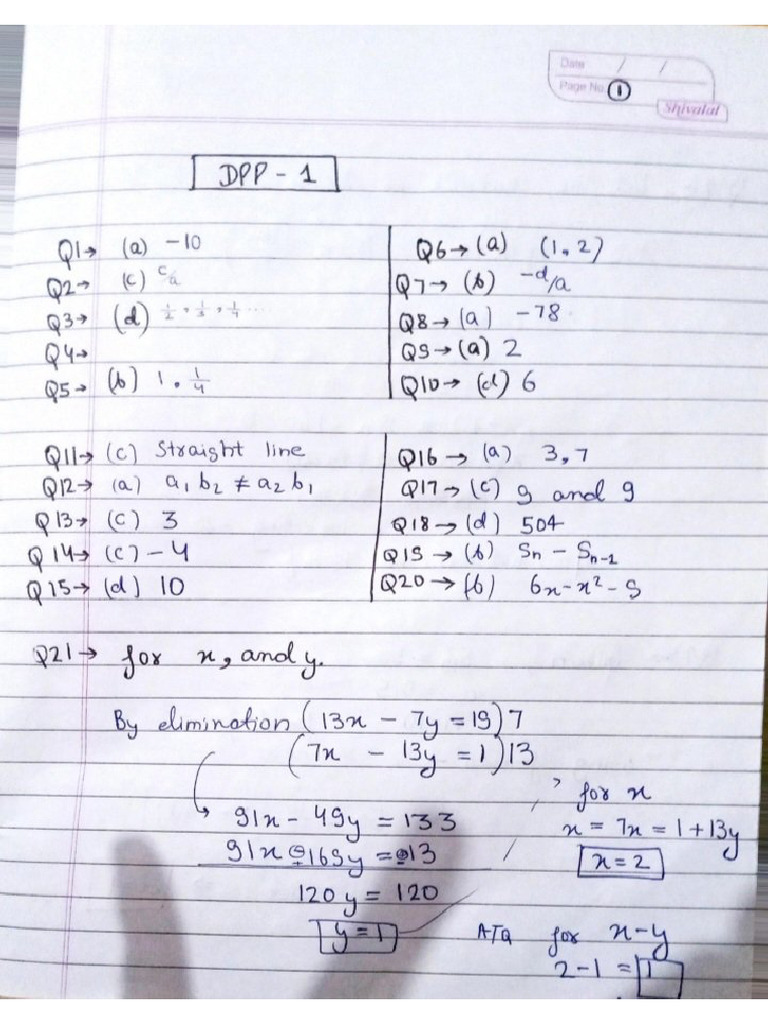 Date / /
Page No. 1
Shivalal
DPP - 1
Q1→ (a) -10
Q2→ (c) c/a
Q3→ (d) 1/2, 1/3, 1/4 ....
Q4→
Q5→ (b) 1, 1/4
Q6→ (a) (1, 2)
Q7→ (b) -d/a
Q8→ (a) -78
Q9→ (a) 2
Q10→ (d) 6
Q11→ (c) Straight line
Q12→ (a) a₁b₂ ≠ a₂b₁
Q13→ (c) 3
Q14→ (c) -4
Q15→ (d) 10
Q16→ (a) 3, 7
Q17→ (c) 9 and 9
Q18→ (d) 504
Q19→ (b) Sₙ - Sₙ₋₁
Q20→ (b) 6x - x² - 5
Q21→ for x, and y.
By elimination (13x - 7y = 19) 7
(7x - 13y = 1) 13
91x - 49y = 133
91x - 169y = 13
120y = 120
y = 1
for x
x = 7x = 1 + 13y
x = 2
ATQ for x - y
2 - 1 = 1